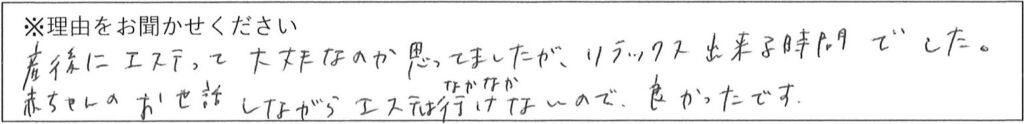 ※理由をお聞かせください
産後にエステって大丈夫なのか思ってましたが、リラックス出来る時間でした。
赤ちゃんのお世話しながらエステはなかなか行けないので、良かったです.